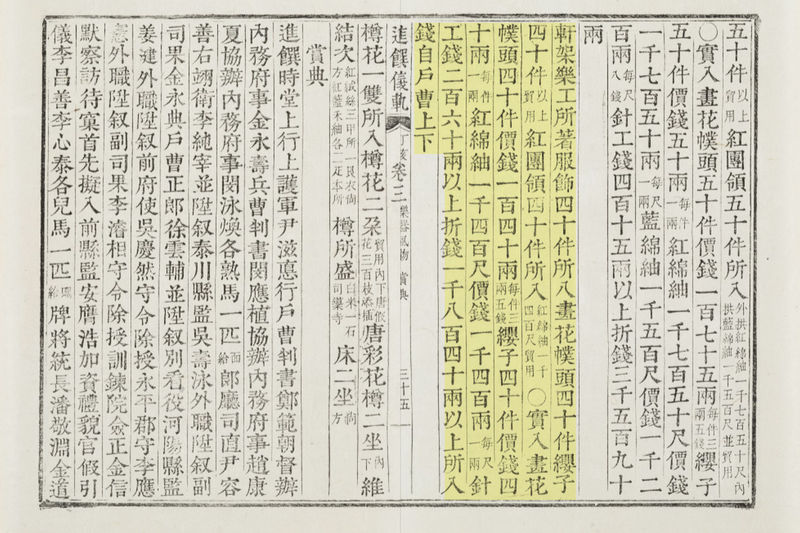 五十件以上貿用紅團領五十件所入外拱紅綿紬一千七百五十尺內拱藍綿紬一千五百尺並貿用
〇實入畫花幞頭五十件價錢一百七十五兩每件三兩五錢纓子
五十件價錢五十兩每件一兩紅綿紬一千七百五十尺價錢
一千七百五十兩每尺一兩藍綿紬一千五百尺價錢一千二
百兩每尺八錢針工錢四百十五兩以上折錢三千五百九十
兩
軒架樂工所著服飾四十件所入畫花幞頭四十件纓子
四十件以上貿用紅團領四十件所入紅綿紬一千四百尺貿用〇實入畫花
幞頭四十件價錢一百四十兩每件三兩五錢纓子四十件價錢四
十兩每件一兩紅綿紬一千四百尺價錢一千四百兩每尺一兩針
工錢二百六十兩以上折錢一千八百四十兩以上所入
錢自戶曹上下
進饌儀軌 丁亥 卷三 樂器風物 賞典 三十五
樽花一雙所入樽花二朶貿用內下唐假花三百枝添插唐彩花樽二坐內下維
結次紅絨絲三甲所一艮衣尙方紅藍禾紬各一疋本所樽所盛白米一石司䆃寺床二坐尙方
賞典
進饌時堂上行上護軍尹滋悳行戶曹判書鄭範朝督辦
內務府事金永壽兵曹判書閔應植協辦內務府事趙康
夏協辦內務府事閔泳煥各熟馬一匹面給郞廳司直尹容
善右翊衛李純宰並陞叙泰川縣監吳壽泳外職陞叙副
司果金永典戶曹正郞徐雲輔並陞叙別看役河陽縣監
姜湕外職陞叙前府使吳慶然守令除授永平郡守李應
憲外職陞叙副司果李濬相守令除授訓鍊院僉正金信
默察訪待窠首先擬入前縣監安膺浩加資禮貌官假引
儀李昌善李心泰各兒馬一匹賜給牌將統長潘敬淵金道